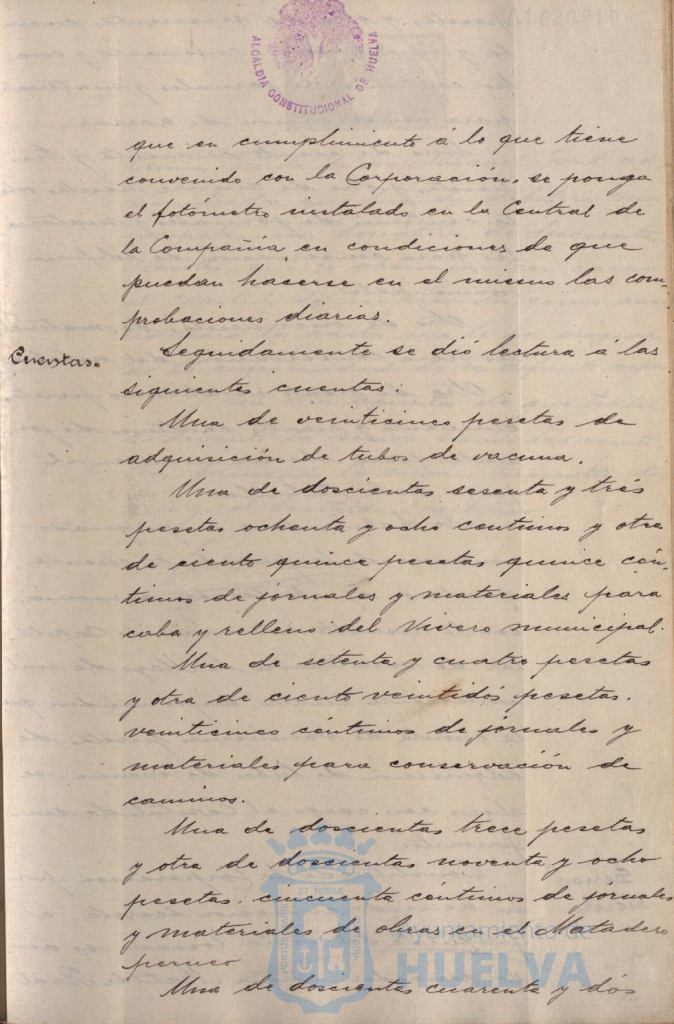 ALCALDIA CONSTITUCIONAL DE HUELVA
que en cumplimiento á lo que tiene
convenido con la Corporación, se ponga
el fotómetro instalado en la Central de
la Compañía en condiciones de que
puedan hacerse en el mismo las com-
probaciones diarias.
Cuentas.
Seguidamente se dió lectura á las
siguientes cuentas:
Una de veinticinco pesetas de
adquisición de tubos de vacuna.
Una de doscientas sesenta y trés
pesetas ochenta y ocho céntimos y otra
de ciento quince pesetas quince cén-
timos de jornales y materiales para
caba y relleno del Vivero municipal.
Una de setenta y cuatro pesetas
y otra de ciento veintidós pesetas.
veinticinco céntimos de jornales y
materiales para conservación de
caminos.
Una de doscientas trece pesetas
y otra de doscientas noventa y ocho
pesetas. cincuenta céntimos de jornales
y materiales de obras en el Matadero
Una de doscientas cuarenta y dós
Ayuntamiento de
HUELVA